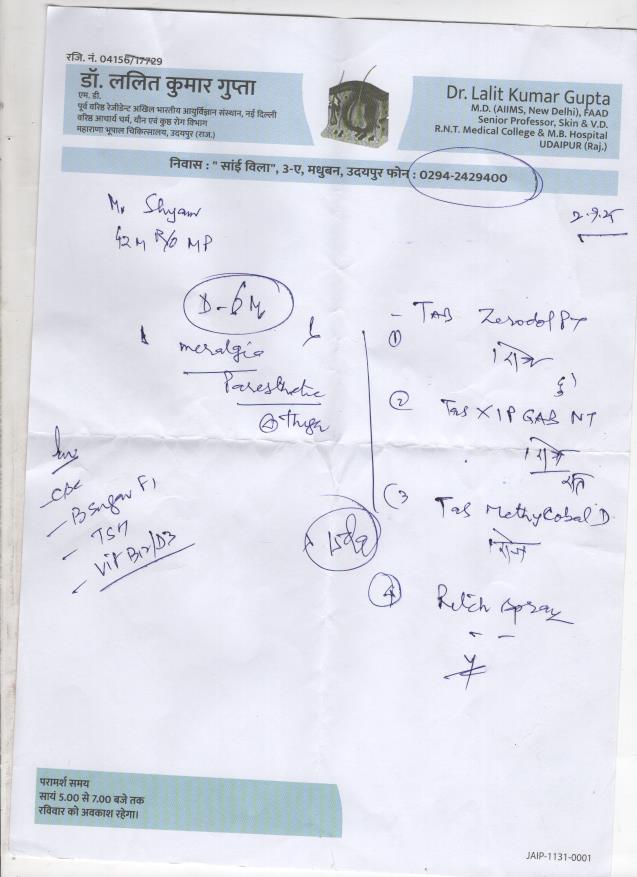 रजि. नं. 04156/17729
डॉ. ललित कुमार गुप्ता
एम. डी.
पूर्व वरिष्ठ रेजीडेन्ट अखिल भारतीय आयुर्विज्ञान संस्थान, नई दिल्ली
वरिष्ठ आचार्य चर्म, यौन एवं कुष्ठ रोग विभाग
महाराणा भूपाल चिकित्सालय, उदयपुर (राज.)
Dr. Lalit Kumar Gupta
M.D. (AIIMS, New Delhi), FAAD
Senior Professor, Skin & V.D.
R.N.T. Medical College & M.B. Hospital
UDAIPUR (Raj.)
निवास : " सांई विला", 3-ए, मधुबन, उदयपुर फोन : 0294-2429400
Mr Shyam
42 M R/O MP
D-6M
meralgia
Paresthetic
Thigh
Inv
- CBC
- B Sugar F,
- TSH
- Vit B12/D3
- TAB Zerodol
①
② Tab XIP GAB NT
③ Tab Methylcobal D
रोज
④ spray
परामर्श समय
सायं 5.00 से 7.00 बजे तक
रविवार को अवकाश रहेगा।
JAIP-1131-0001